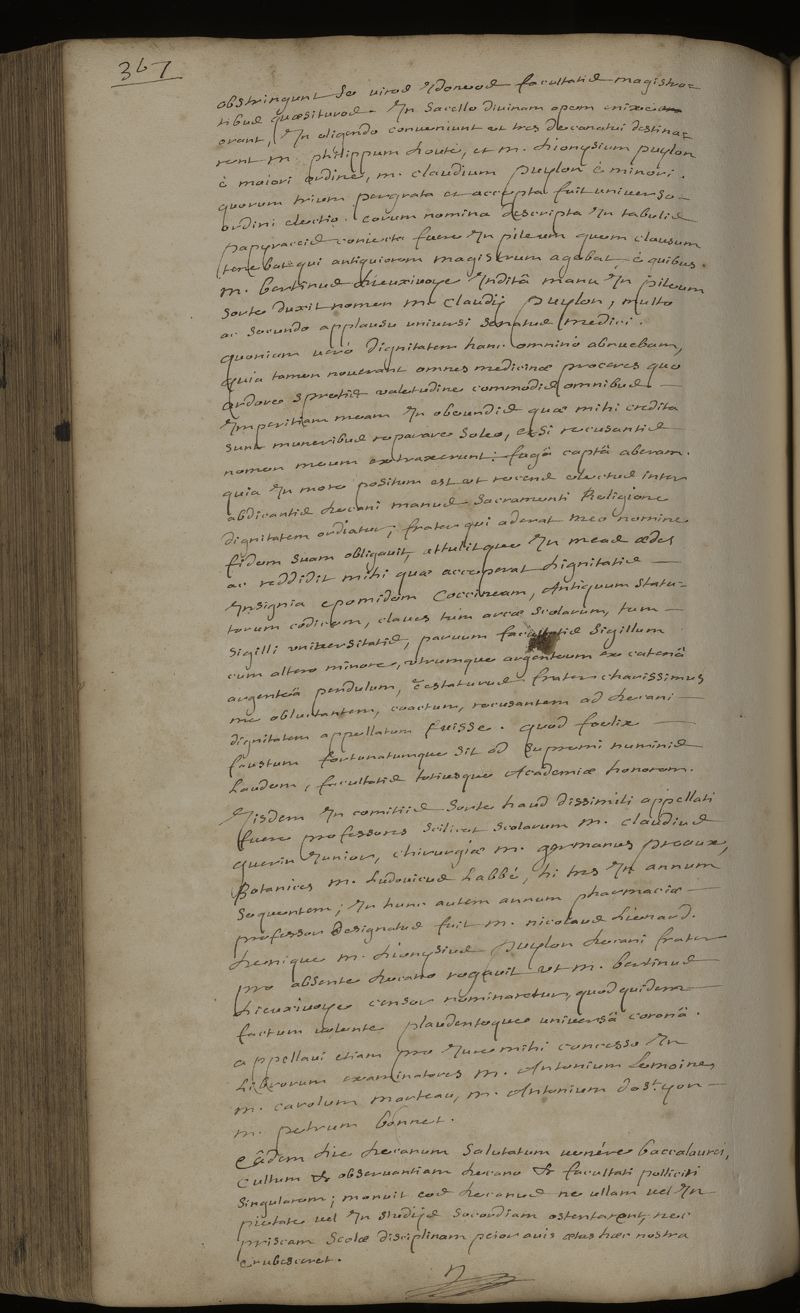 367
obstringunt se viros Idoneos facultatis magistra=
tibus quæsituros. In sacello divinam opem enixè
orant, In eligendo conveniunt et tres decanatui destina=
runt m. philippum douté, et m. dionysium puylon
è maiori ordine, m. claudium puylon è minori.
quorum trium pergrata et accepta fuit universo
ordini electio. eorum nomina descripta In tabulis
papyraceis coniecta fuere In pileum quem clausum
tenebat qui antiquiorem magistrum agebat è quibus
m. bertinus dieuxivoye Inditâ manu In pileum
sorte duxit nomen m. claudij puylon, multo
ac secundo applausu universi senatus medici.
quoniam verò dignitatem hanc omninò abnuebam,
quia tamen noverant omnes medicinæ proceres quo
ardore spretis valetudine commodis omnibus
Imperitiam meam In obeundis quæ mihi credita
sunt muneribus reparare soleo, etsi recusantis
nomen meum extraxerunt: fugâ captâ aberam.
quia In more positum est ut recens electus inter
abdicantis decani manus sacramenti Religione
dignitatem ordiatur, frater qui aderat meo nomine
fidem suam obligavit, attulitque In meas ædes
ac reddidit mihi quæ acceperat dignitatis
Insignia epomidem Coccineam, Antiquum statu=
torum codicem, claves tùm arcæ scolarum, tum
sigilli universitatis, parvum facultatis sigillum
cum altero minore, utrumque argenteum ex catenâ
argenteâ pendulum, testaturus frater charissimus
me obluctantem, coactum, recusantem ad decani
dignitatem appellatum fuisse. quod foelix
faustum fortunatumque sit ad supremi numinis
laudem, facultatis totiusque Academiæ honorem.
Iisdem In comitiis sorte haud dissimili appellati
fuere professores scilicet scolarum m. claudius
guerin Iunior, chirurgiæ m. germanus preaux,
Botanices m. Ludovicus Labbé, hi tres In annum
sequentem; In hunc autem annum pharmaciæ
professor designatus fuit m. nicolaus Lienard.
denique m. dionysius puylon decani frater
pro absente decano rogavit ut m. bertinus
dieuxivoye censor nominaretur, quod quidem
factum volente plaudenteque universâ coronâ.
appellavi etiam pro Iure mihi concesso In
Librorum examinatores m. Antonium Lemoine,
m. carolum marteau, m. Antonium de st. yon
m. petrum bonnet.
eâdem die decanum salutatum venére baccalaurei,
Cultum & observantiam decano & facultati polliciti
singularem; monuit eos decanus ne ullam vel In
pietate vel In studijs socordiam ostentarent, nec
priscam scolæ disciplinam peior avis ætas hæc nostra
erubesceret.